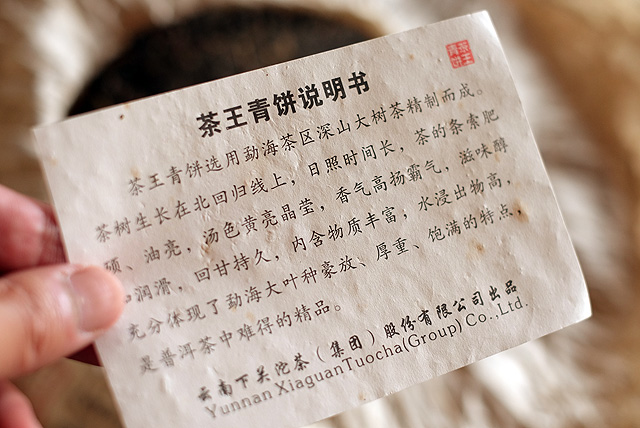 茶王
青饼
茶王青饼说明书
茶王青饼选用勐海茶区深山大树茶精制而成。
茶树生长在北回归线上，日照时间长，茶的条索肥
硕、油亮，汤色黄亮晶莹，香气高扬霸气，滋味醇
润滑，回甘持久，内含物质丰富，水浸出物高，
充分体现了勐海大叶种豪放、厚重、饱满的特点，
是普洱茶中难得的精品。
云南下关沱茶（集团）股份有限公司出品
Yunnan XiaguanTuocha(Group) Co.,Ltd.